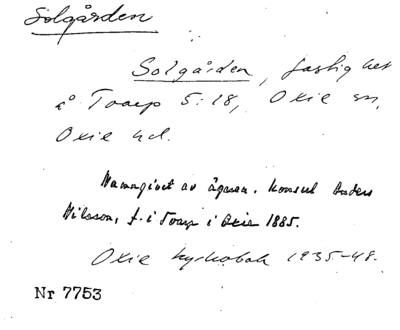 Solgården
Solgården, fastighet
å Toarp 5:18, Oxie sn,
Oxie hd.
Namngivet av ägaren, konsul Anders
Nilsson, f. i Toarp i Oxie 1885.
Oxie kyrkobok 1935-48.
Nr 7753